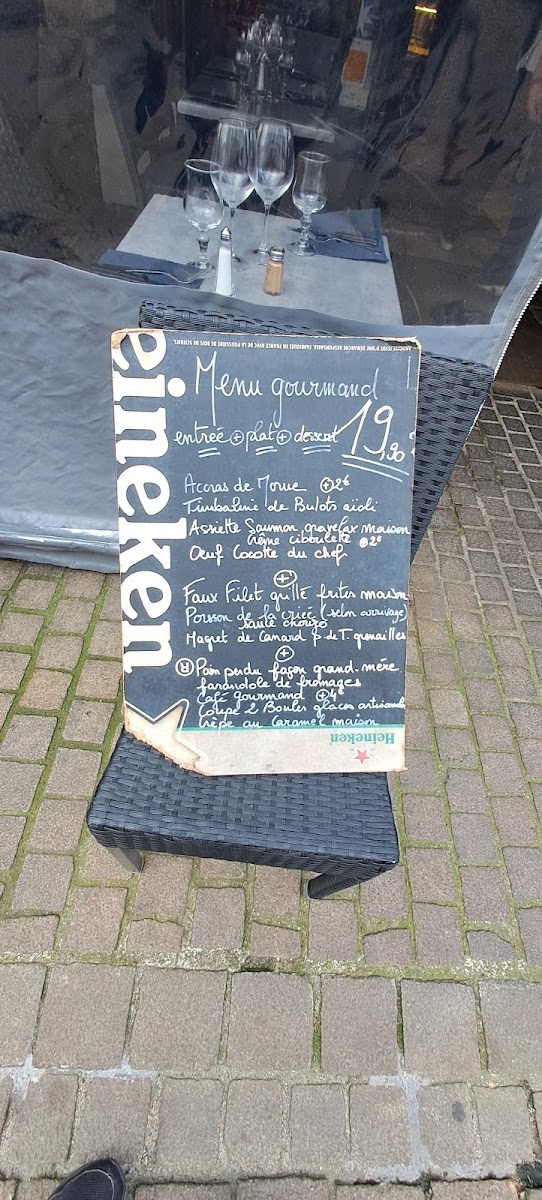 ARDOISE ISSUE D'UNE DÉMARCHE RESPONSABLE. FABRIQUÉE EN FRANCE AVEC DE LA POUSSIÈRE DE BOIS DE SCIERIES.
eineken
Menu gourmand
entrée + plat + dessert 19,90
Accras de Morue +2€
Timbaline de Bulots aïoli
Assiette Saumon gravelax maison
crème ciboulette +2€
Oeuf Cocotte du chef
+
Faux Filet grillé frites maison
Poisson de la criée (selon arrivage)
sauce chorizo
Magret de Canard p. de T. grenailles
+
R Pain perdu façon grand-mère
farandole de fromages
Café gourmand +4€
Coupe 2 Boules glaces artisanales
Crêpe au Caramel maison
Heineken